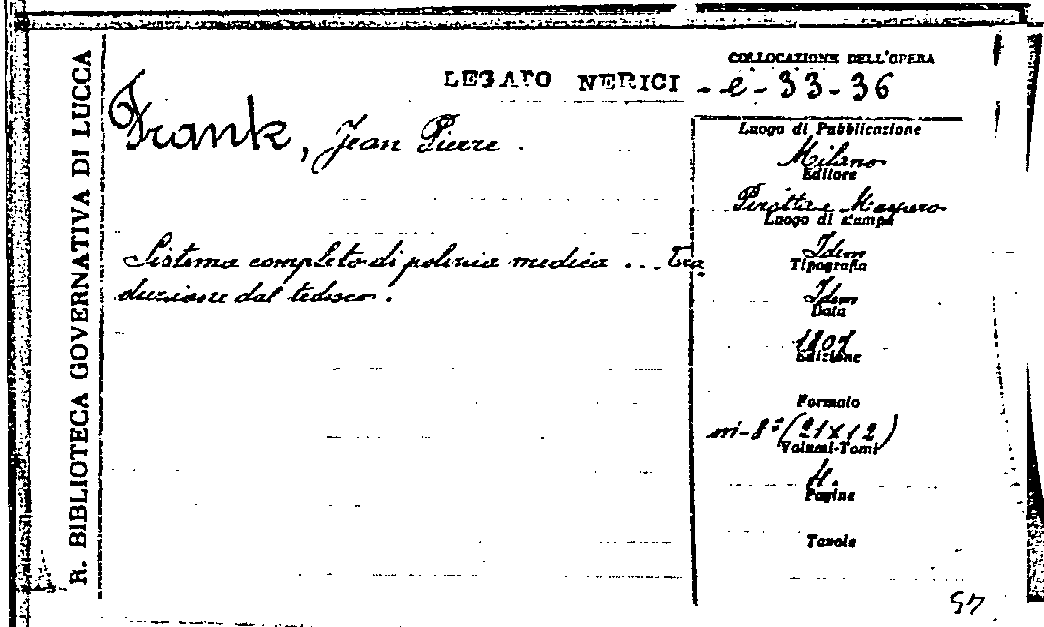 R. BIBLIOTECA GOVERNATIVA DI LUCCA
LEGATO NERICI
COLLOCAZIONE DELL'OPERA
- e - 33 - 36
Frank, Jean Pierre.
Sistema completo di polizia medica ... Tra
duzione dal tedesco.
Luogo di Pubblicazione
Milano
Editore
Pirotta e Maspero
Luogo di stampa
Idem
Tipografia
Idem
Data
1807
Edizione
Formato
in-8° (21x12)
Volumi-Tomi
Pagine
Tavole